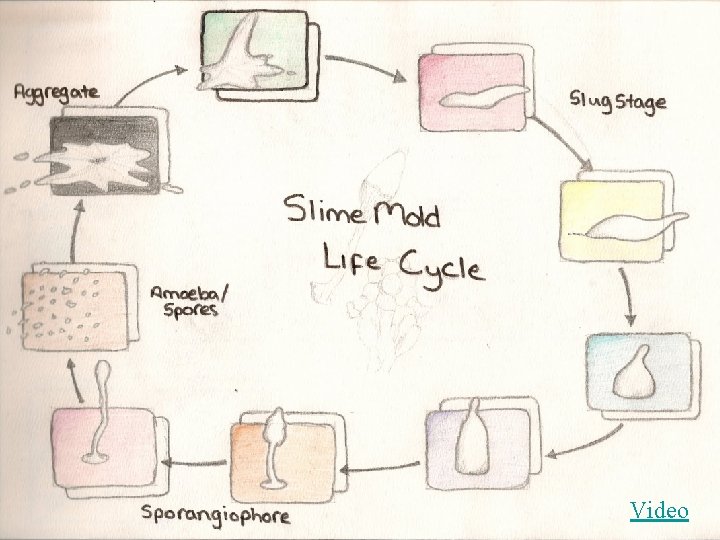 Aggregate
Slug Stage
Slime Mold
Life Cycle
Amoeba/
Spores
Sporangiophore
Video